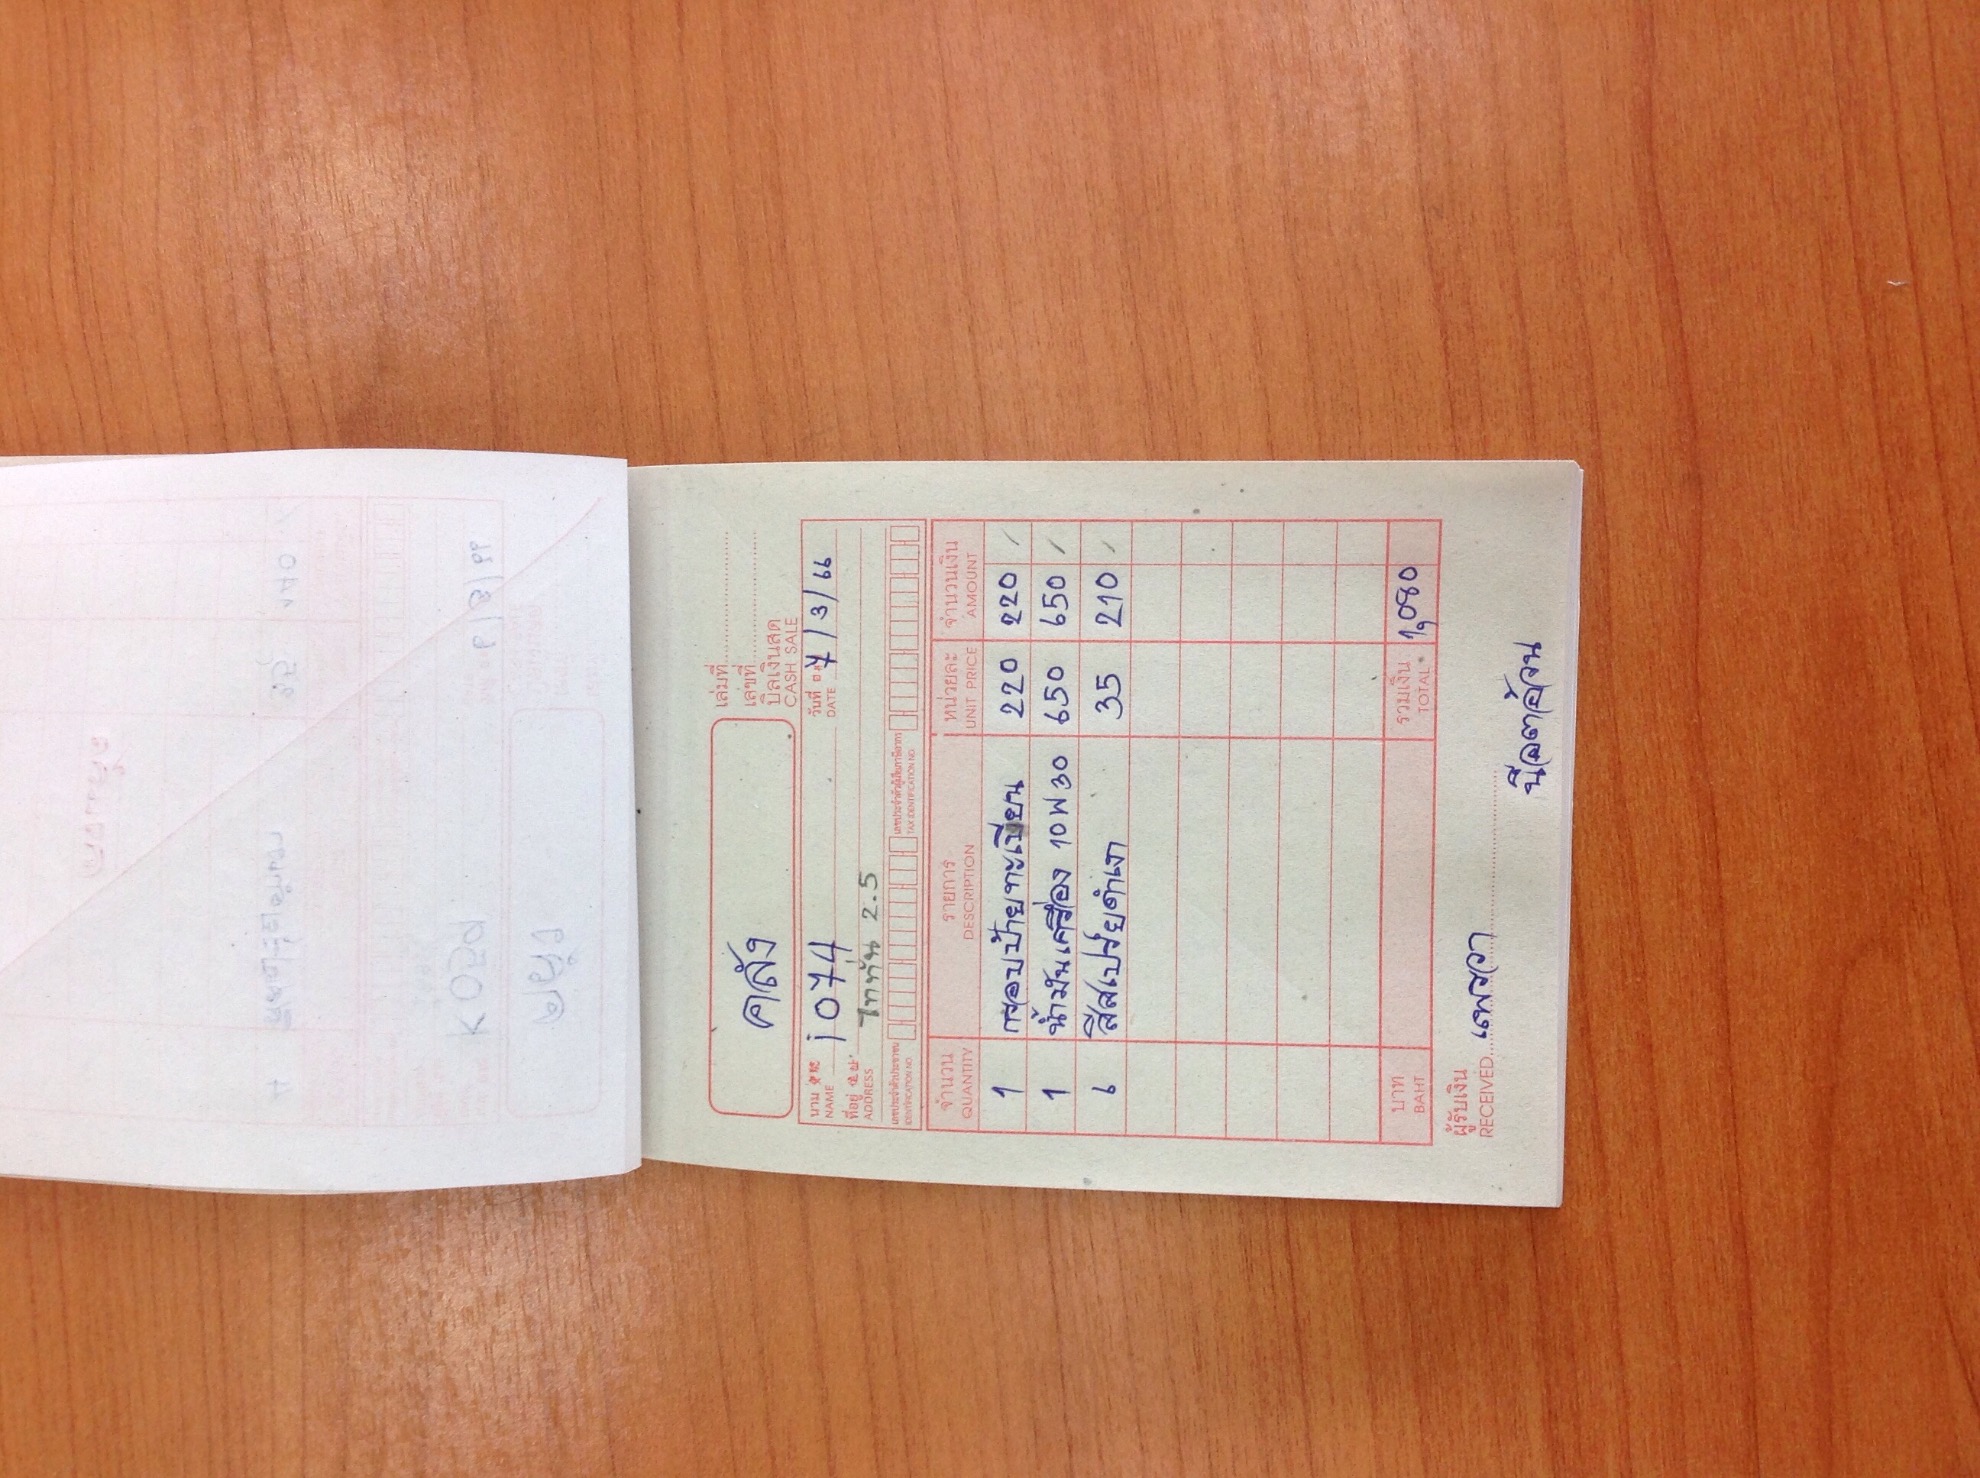 เล่มที่
เลขที่
คลัง
บิลเงินสด
CASH SALE
นาม
NAME
i 074
วันที่
DATE
7/3/66
ที่อยู่
ADDRESS
ไททัน 2.5
เลขประจำตัวประชาชน
IDENTIFICATION NO.
เลขประจำตัวผู้เสียภาษีอากร
TAX IDENTIFICATION NO.
จำนวน รายการ หน่วยละ จำนวนเงิน
QUANTITY DESCRIPTION UNIT PRICE AMOUNT
1 กรอบป้ายทะเบียน 220 220 /
1 น้ำมันเครื่อง 10W30 650 650 /
6 สีสเปรย์ดำเงา 35 210 /
บาท รวมเงิน 1,080
BAHT TOTAL
ผู้รับเงิน
RECEIVED
แพรวา
น๊อตอ้วน